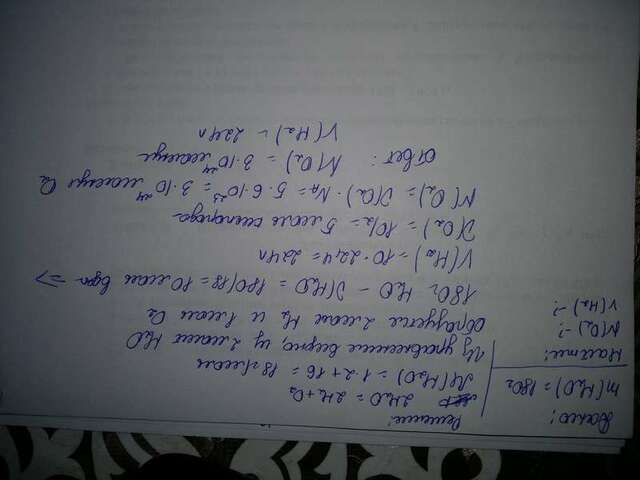 Дано:
m(H₂O) = 180г
Найти:
N(O₂) - ?
V(H₂) - ?
Решение:
2H₂O = 2H₂ + O₂
M(H₂O) = 1·2 + 16 = 18 г/моль
Из уравнения видно, из 2 молей H₂O
образуется 2 моль H₂ и 1 моль O₂
180г H₂O - ν(H₂O) = 180/18 = 10 моль воды =>
V(H₂) = 10·22,4 = 224л
ν(O₂) = 10/2 = 5 моль кислорода
N(O₂) = ν(O₂)·Nₐ = 5·6·10²³ = 3·10²⁴ молекул O₂
Ответ: N(O₂) = 3·10²⁴ молекул
V(H₂) = 224л